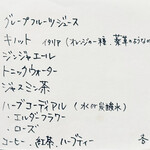 グレープフルーツジュース
キノット イタリア(オレンジの一種、薬草のような
ジンジャエール
トニックウォーター
ジャスミン茶
ハーブコーディアル(水 or 炭酸水)
・エルダーフラワー
・ローズ
コーヒー、紅茶、ハーブティー 各